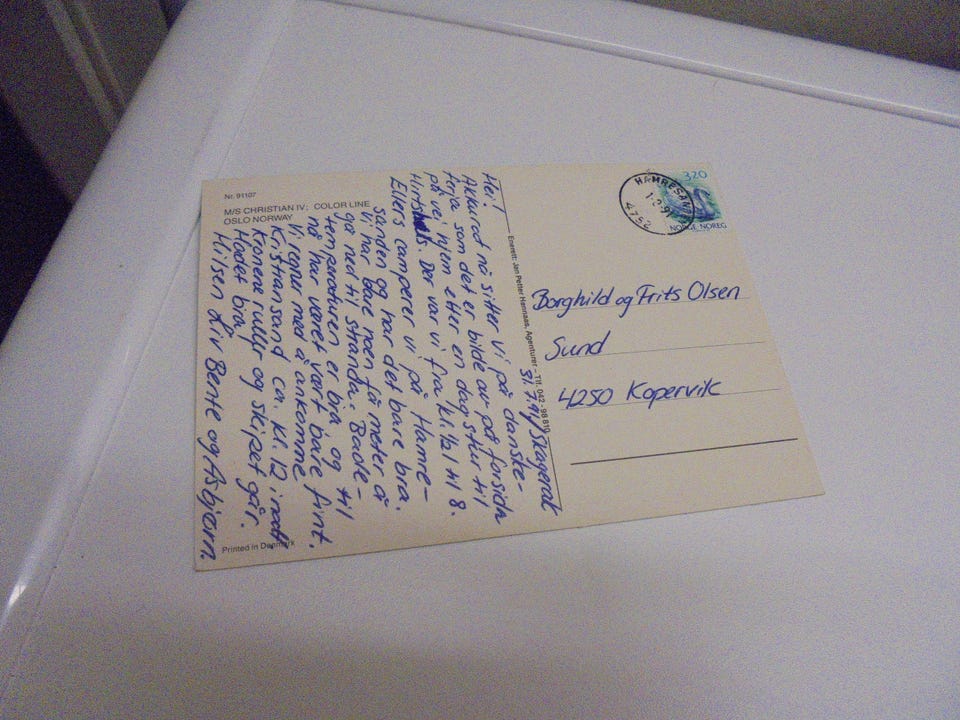 Nr. 91107
M/S CHRISTIAN IV; COLOR LINE
OSLO NORWAY
31.7.91/Skagerak
Hei!
Akkurat nå sitter vi på danske-
ferja som det er bilde av på forsida
på vei hjem etter en dagstur til
Hirtshals. Der var vi fra kl. ½1 til 8.
Ellers camperer vi på Hamre-
sanden og har det bare bra.
Vi har bare noen få meter å
gå ned til stranda. Bade-
temperaturen er bra og til
nå har været vært bare fint.
Vi regner med å ankomme
Kristiansand ca. kl. 12 inatt.
Kronene ruller og skipet går.
Hadet bra,
Hilsen Liv Bente og Asbjørn.
Printed in Denmark
Enerett: Jan Petter Hennaas, Agenturer - Tlf. 042-98810
HAMRESANDEN
4752
320
NORGE NOREG
Borghild og Frits Olsen
Sund
4250 Kopervik